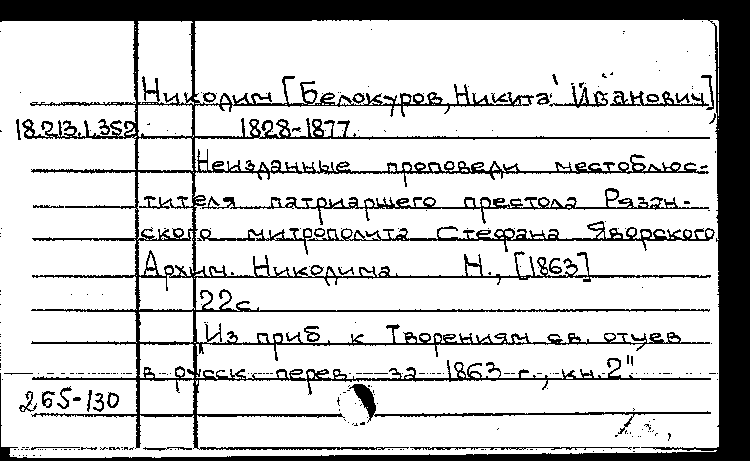 Никодим [Белокуров, Никита Иванович]
18.213.1.352. 1828-1877.
Неизданные проповеди местоблюс-
тителя патриаршего престола Рязан-
ского митрополита Стефана Яворского
Архим. Никодима. М., [1863]
22с.
"Из приб. к Творениям св. отцев
в русск. перев. за 1863 г., кн. 2".
265-130